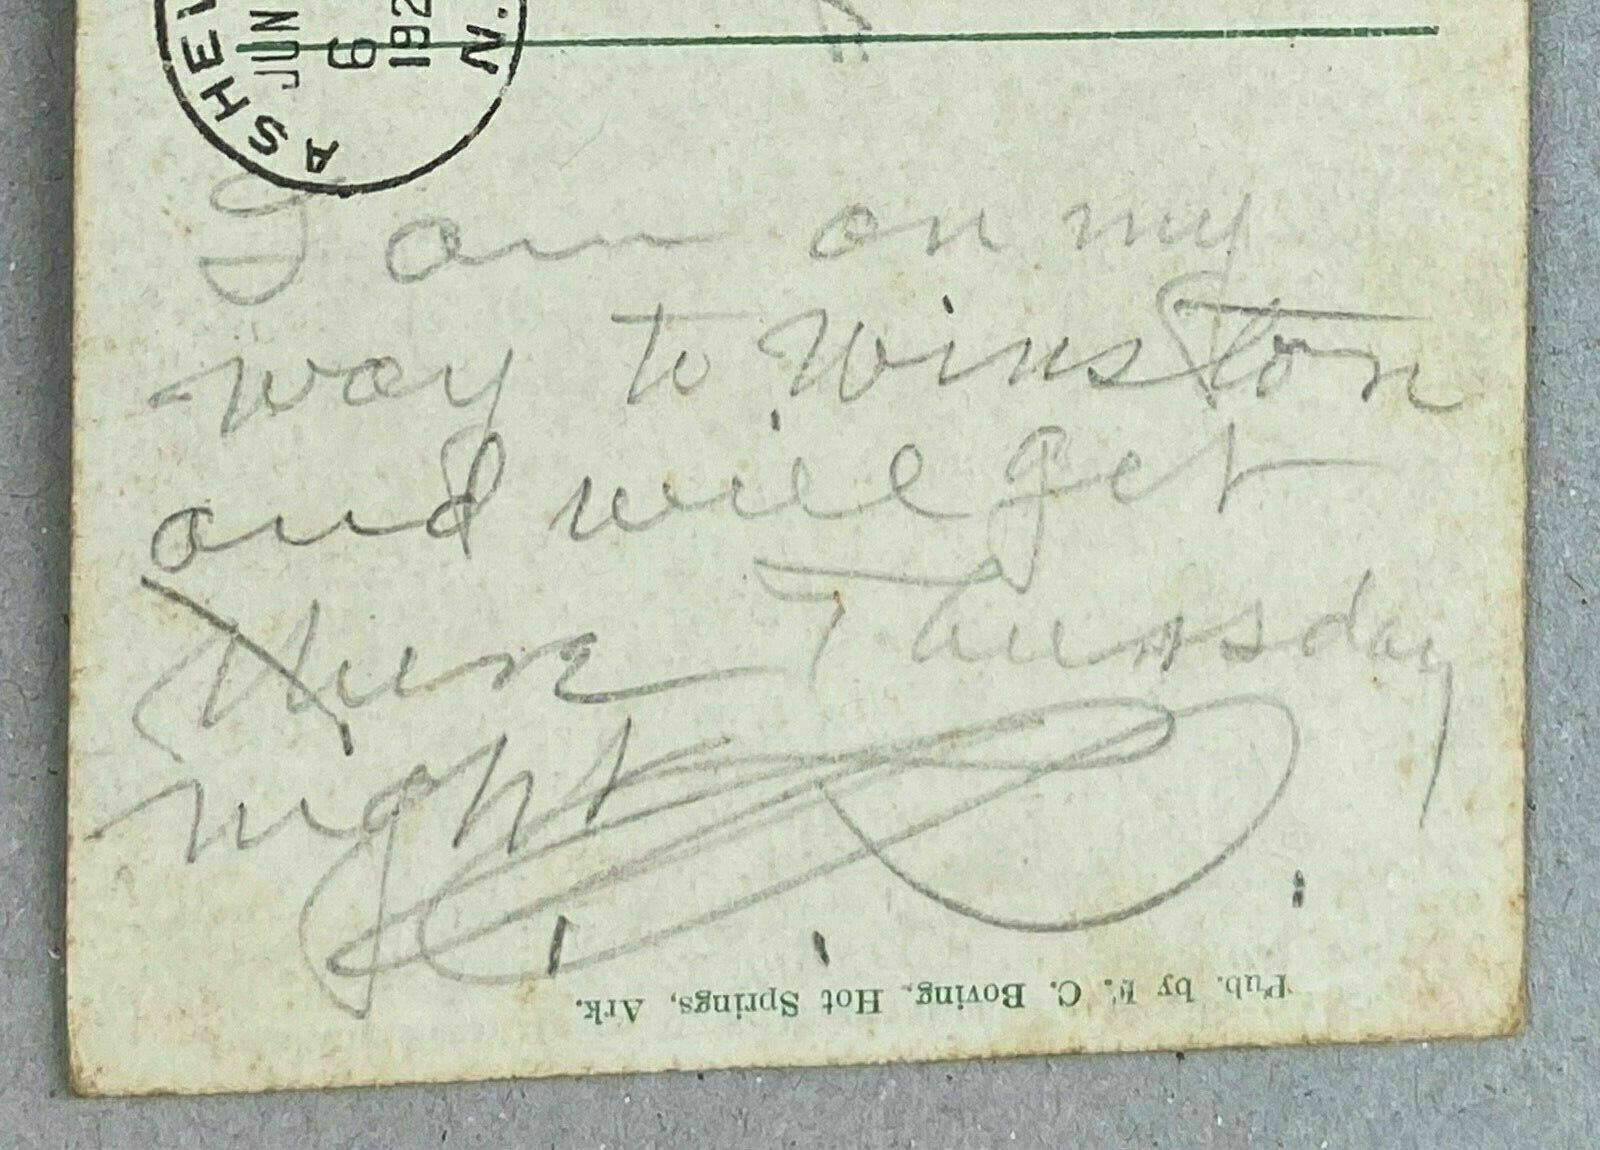 ASHEV
JUN
6
192
N.
I am on my
way to Winston
and will get
there Thursday
night
Pub. by F. C. Boving, Hot Springs, Ark.